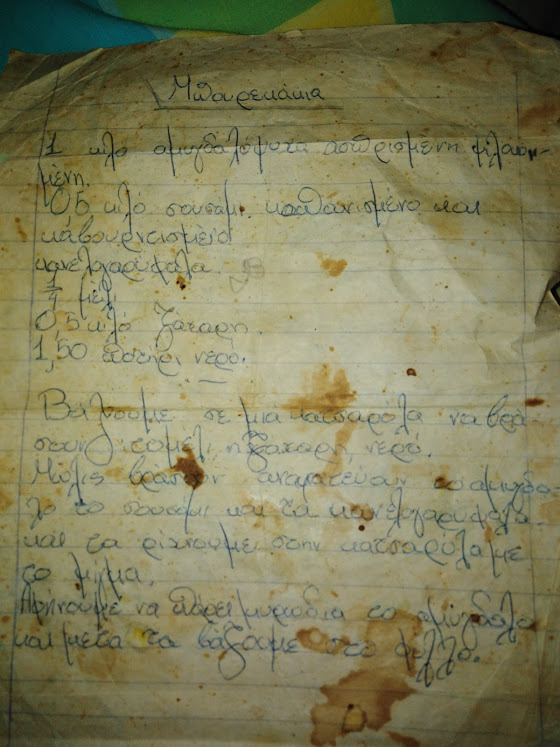 Μπουρεκάκια
1 κιλο αμυγδαλόψυχα ασπρισμενη ψιλοκομ-
μένη.
0,5 κιλό σουσαμι καθαρισμένο και
καβουρτισμένο
κανελογαρύφαλα.
μέλι
0,5 κιλό ζαχαρη.
1,50 ποτηρι νερό.
Βάζουμε σε μια κατσαρόλα να βρά-
σουν το μέλι, η ζαχαρη, νερό.
Μόλις βράσουν ανακατεύουν το αμυγδα-
λο το σουσαμι και τα κανελογαρύφαλα
και τα ρίχνουμε στην κατσαρόλα με
το μίγμα.
Αφηνουμε να πάρει μυρωδια το αμύγδαλο
και μετα τα βάζουμε στο φύλλο.